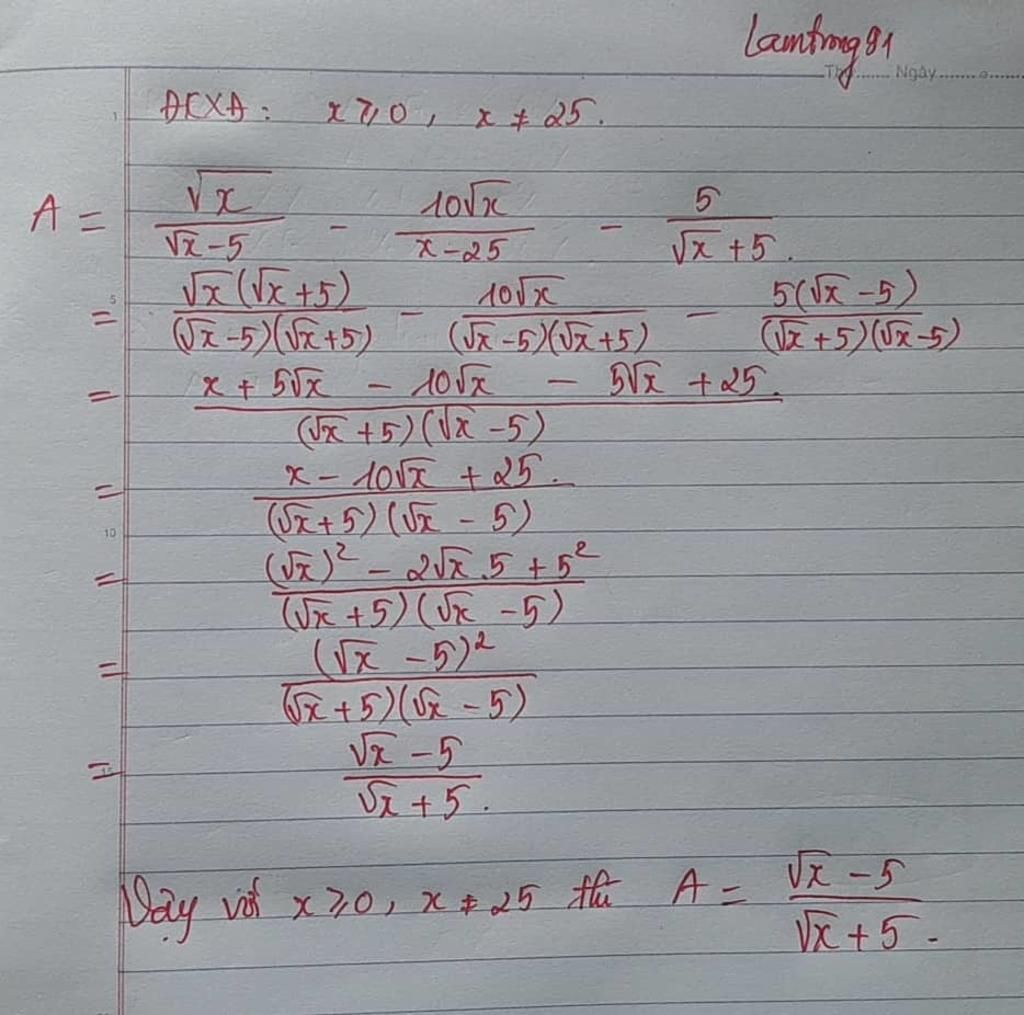 Lamtrong91
Thứ....... Ngày........
ĐKXĐ: x ⩾ 0, x ≠ 25.
A = √x/(√x − 5) − 10√x/(x − 25) − 5/(√x + 5).
= √x(√x + 5)/((√x − 5)(√x + 5)) − 10√x/((√x − 5)(√x + 5)) − 5(√x − 5)/((√x + 5)(√x − 5))
= (x + 5√x − 10√x − 5√x + 25)/((√x + 5)(√x − 5))
= (x − 10√x + 25)/((√x + 5)(√x − 5))
= ((√x)² − 2√x.5 + 5²)/((√x + 5)(√x − 5))
= (√x − 5)²/((√x + 5)(√x − 5))
= (√x − 5)/(√x + 5).
Vậy với x ⩾ 0, x ≠ 25 thì A = (√x − 5)/(√x + 5).